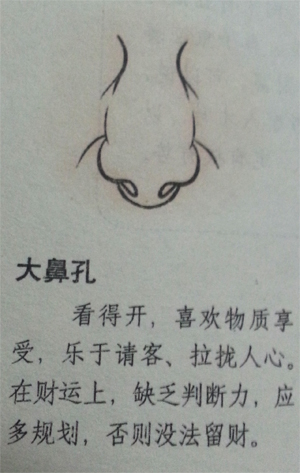 大鼻孔
看得开，喜欢物质享
受，乐于请客、拉拢人心。
在财运上，缺乏判断力，应
多规划，否则没法留财。